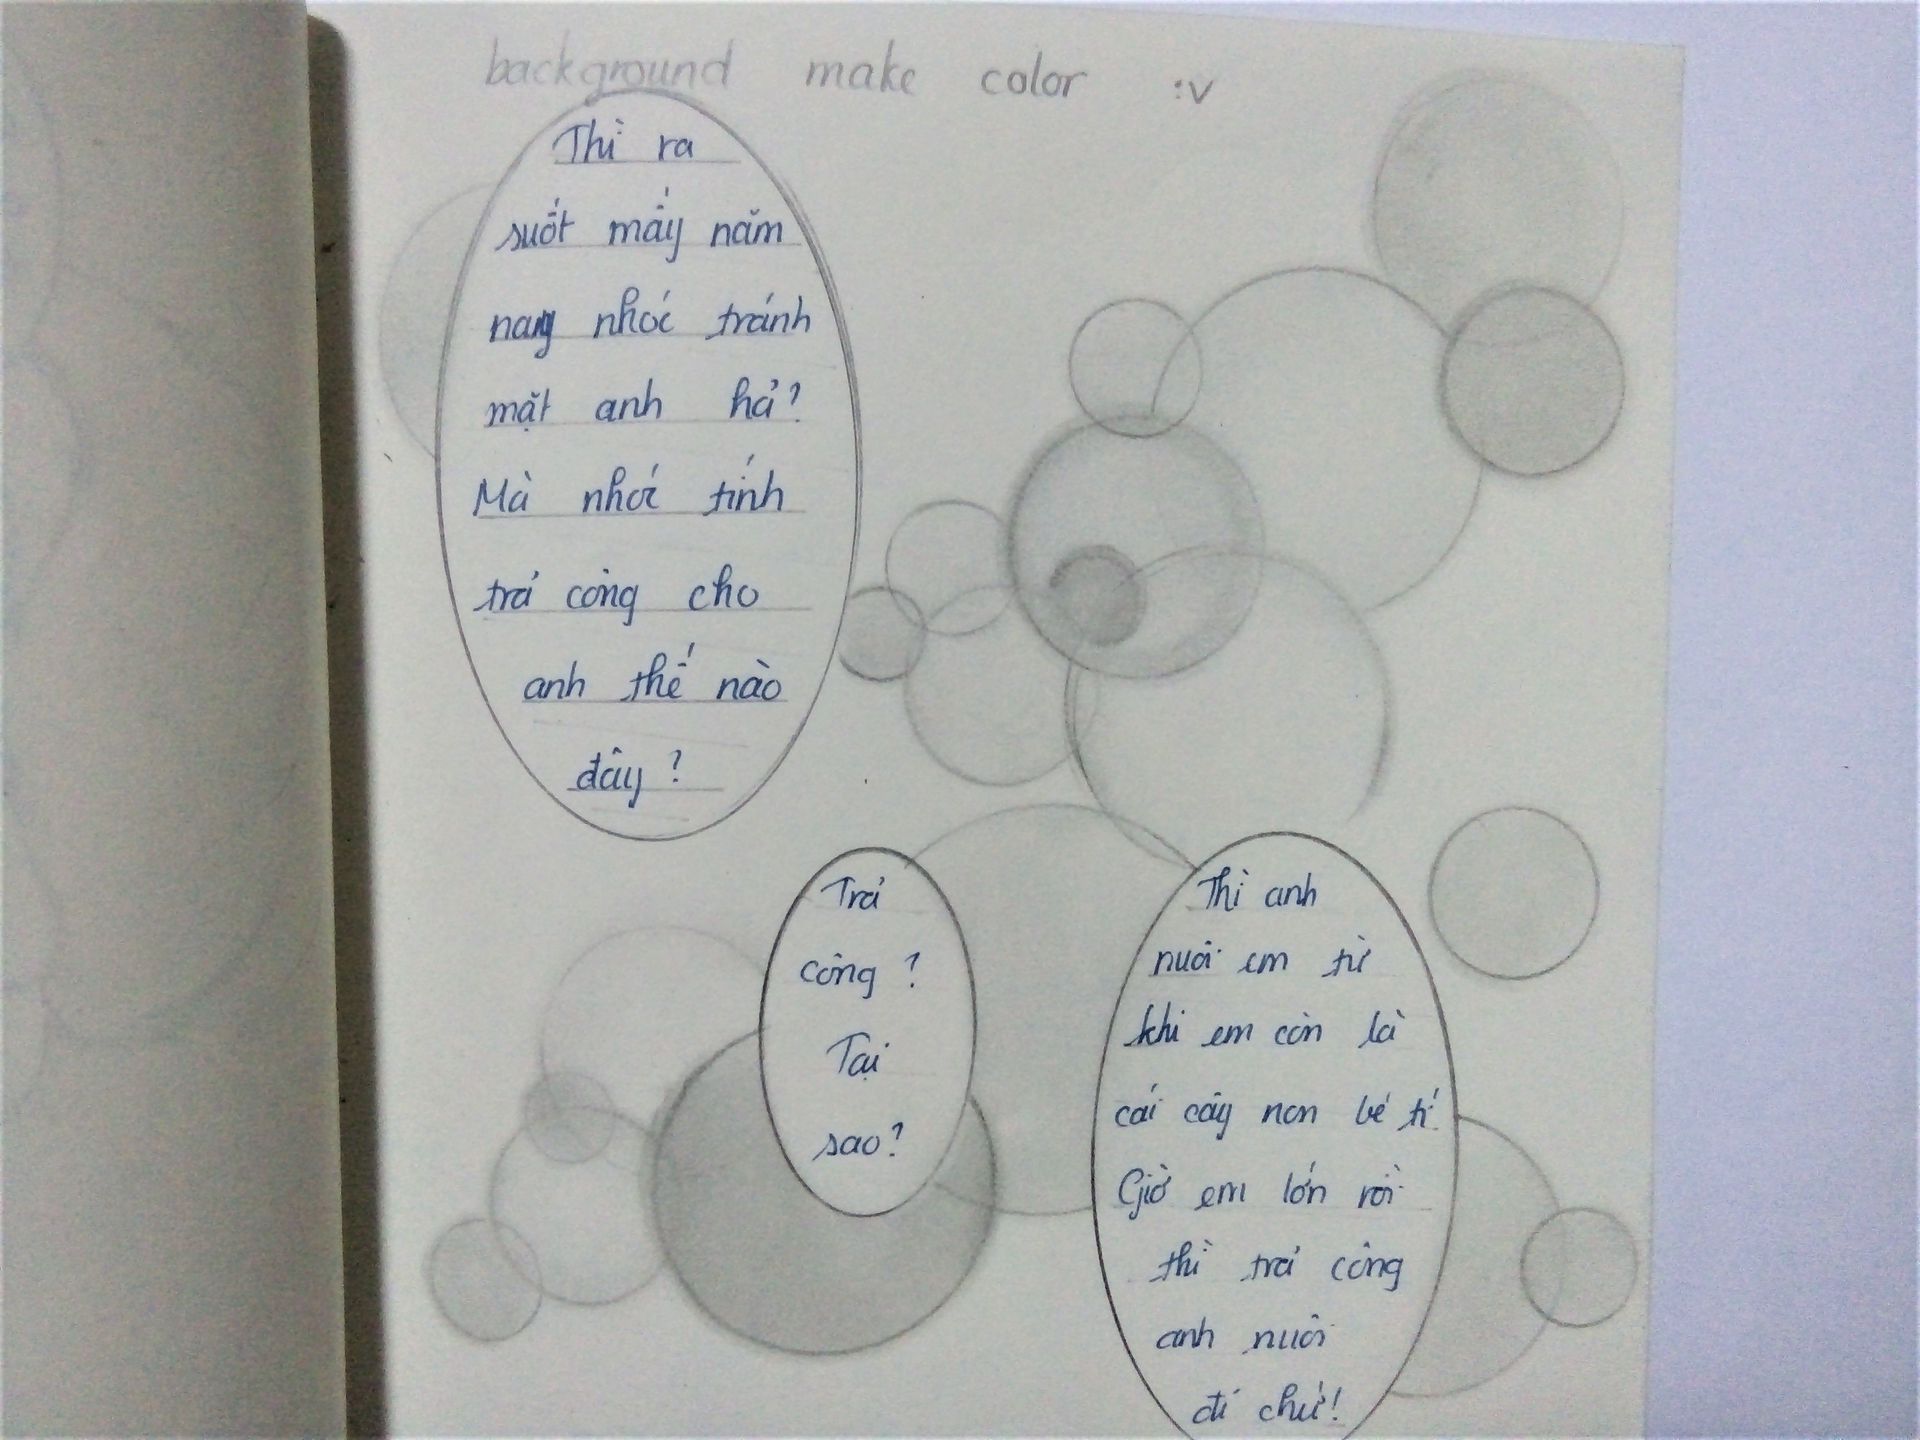 background make color :v
Thì ra
suốt mấy năm
nay nhóc tránh
mặt anh hả?
Mà nhóc tính
trả công cho
anh thế nào
đây?
Trả
công?
Tại
sao?
Thì anh
nuôi em từ
khi em còn là
cái cây non bé tí
Giờ em lớn rồi
thì trả công
anh nuôi
đi chứ!